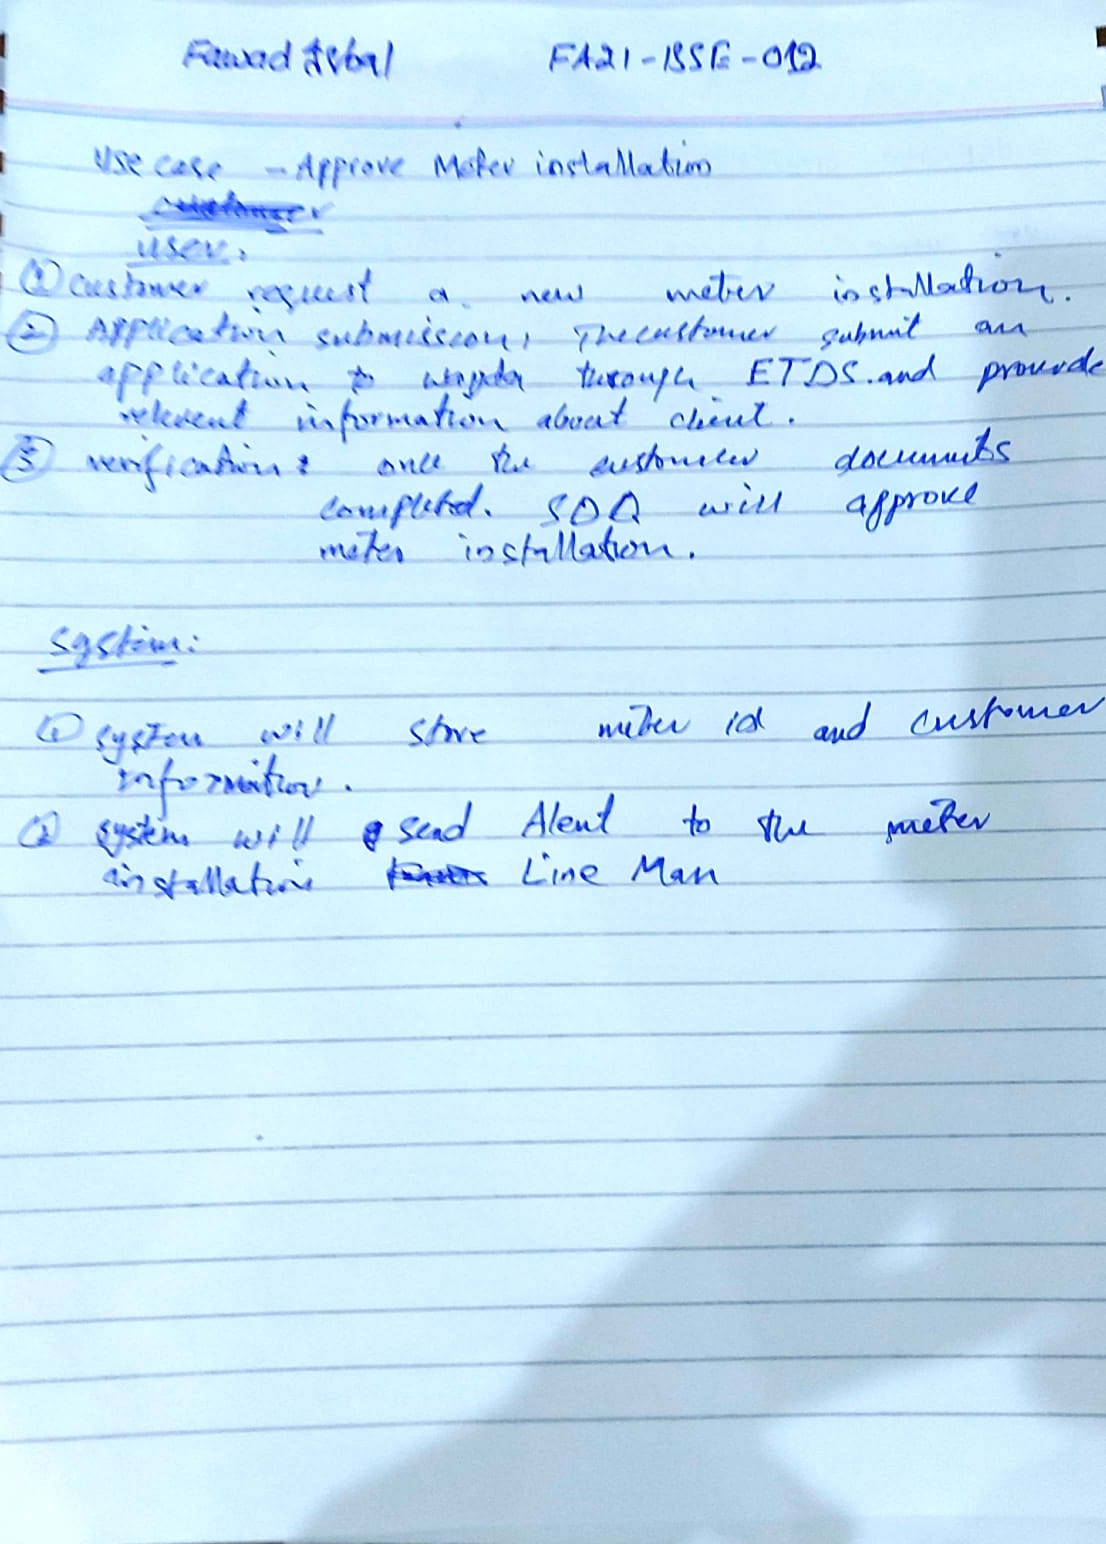 Fawad Iqbal FA21-BSSE-012
Use case - Approve Meter installation
user.
① customer request a new meter installation.
② Application submission, The customer submit an
application to wapda through ETDS. and provide
relevent information about client.
③ verification: once the customer documents
completed. SDO will approve
meter installation.
System:
① system will store meter id and customer
information.
② system will send Alert to the meter
installation Line Man